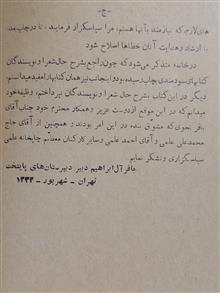 -ج-
های لازم که نیازمند بآنها هستم، مرا سپاسگزار فرمایند، تا در چاپ بعد
با ارشاد و هدایت آنان خطاها اصلاح شود
در خاتمه متذکر می‌شود که چون راجع بشرح حال شعرا و نویسندگان
کتابهای سودمندی بچاپ رسیده بود و اینجانب نیز همان کتابها را مفید میدانستم
دیگر در این کتاب بشرح حال شعرا و نویسندگان نپرداختم، وظیفه خود
میدانم که در این موقع از دوست عزیز و همکار محترم خود جناب آقای
باقر نحوی که مشوق بنده در این امر بودند و همچنین از آقای حاج
محمد علی علمی و آقای احمد علمی و سایر کارکنان معظم چاپخانه علمی
سپاسگزاری و تشکر نمایم
باقر آل ابراهیم دبیر دبیرستان‌های پایتخت
تهران - شهریور - ۱۳۳۳